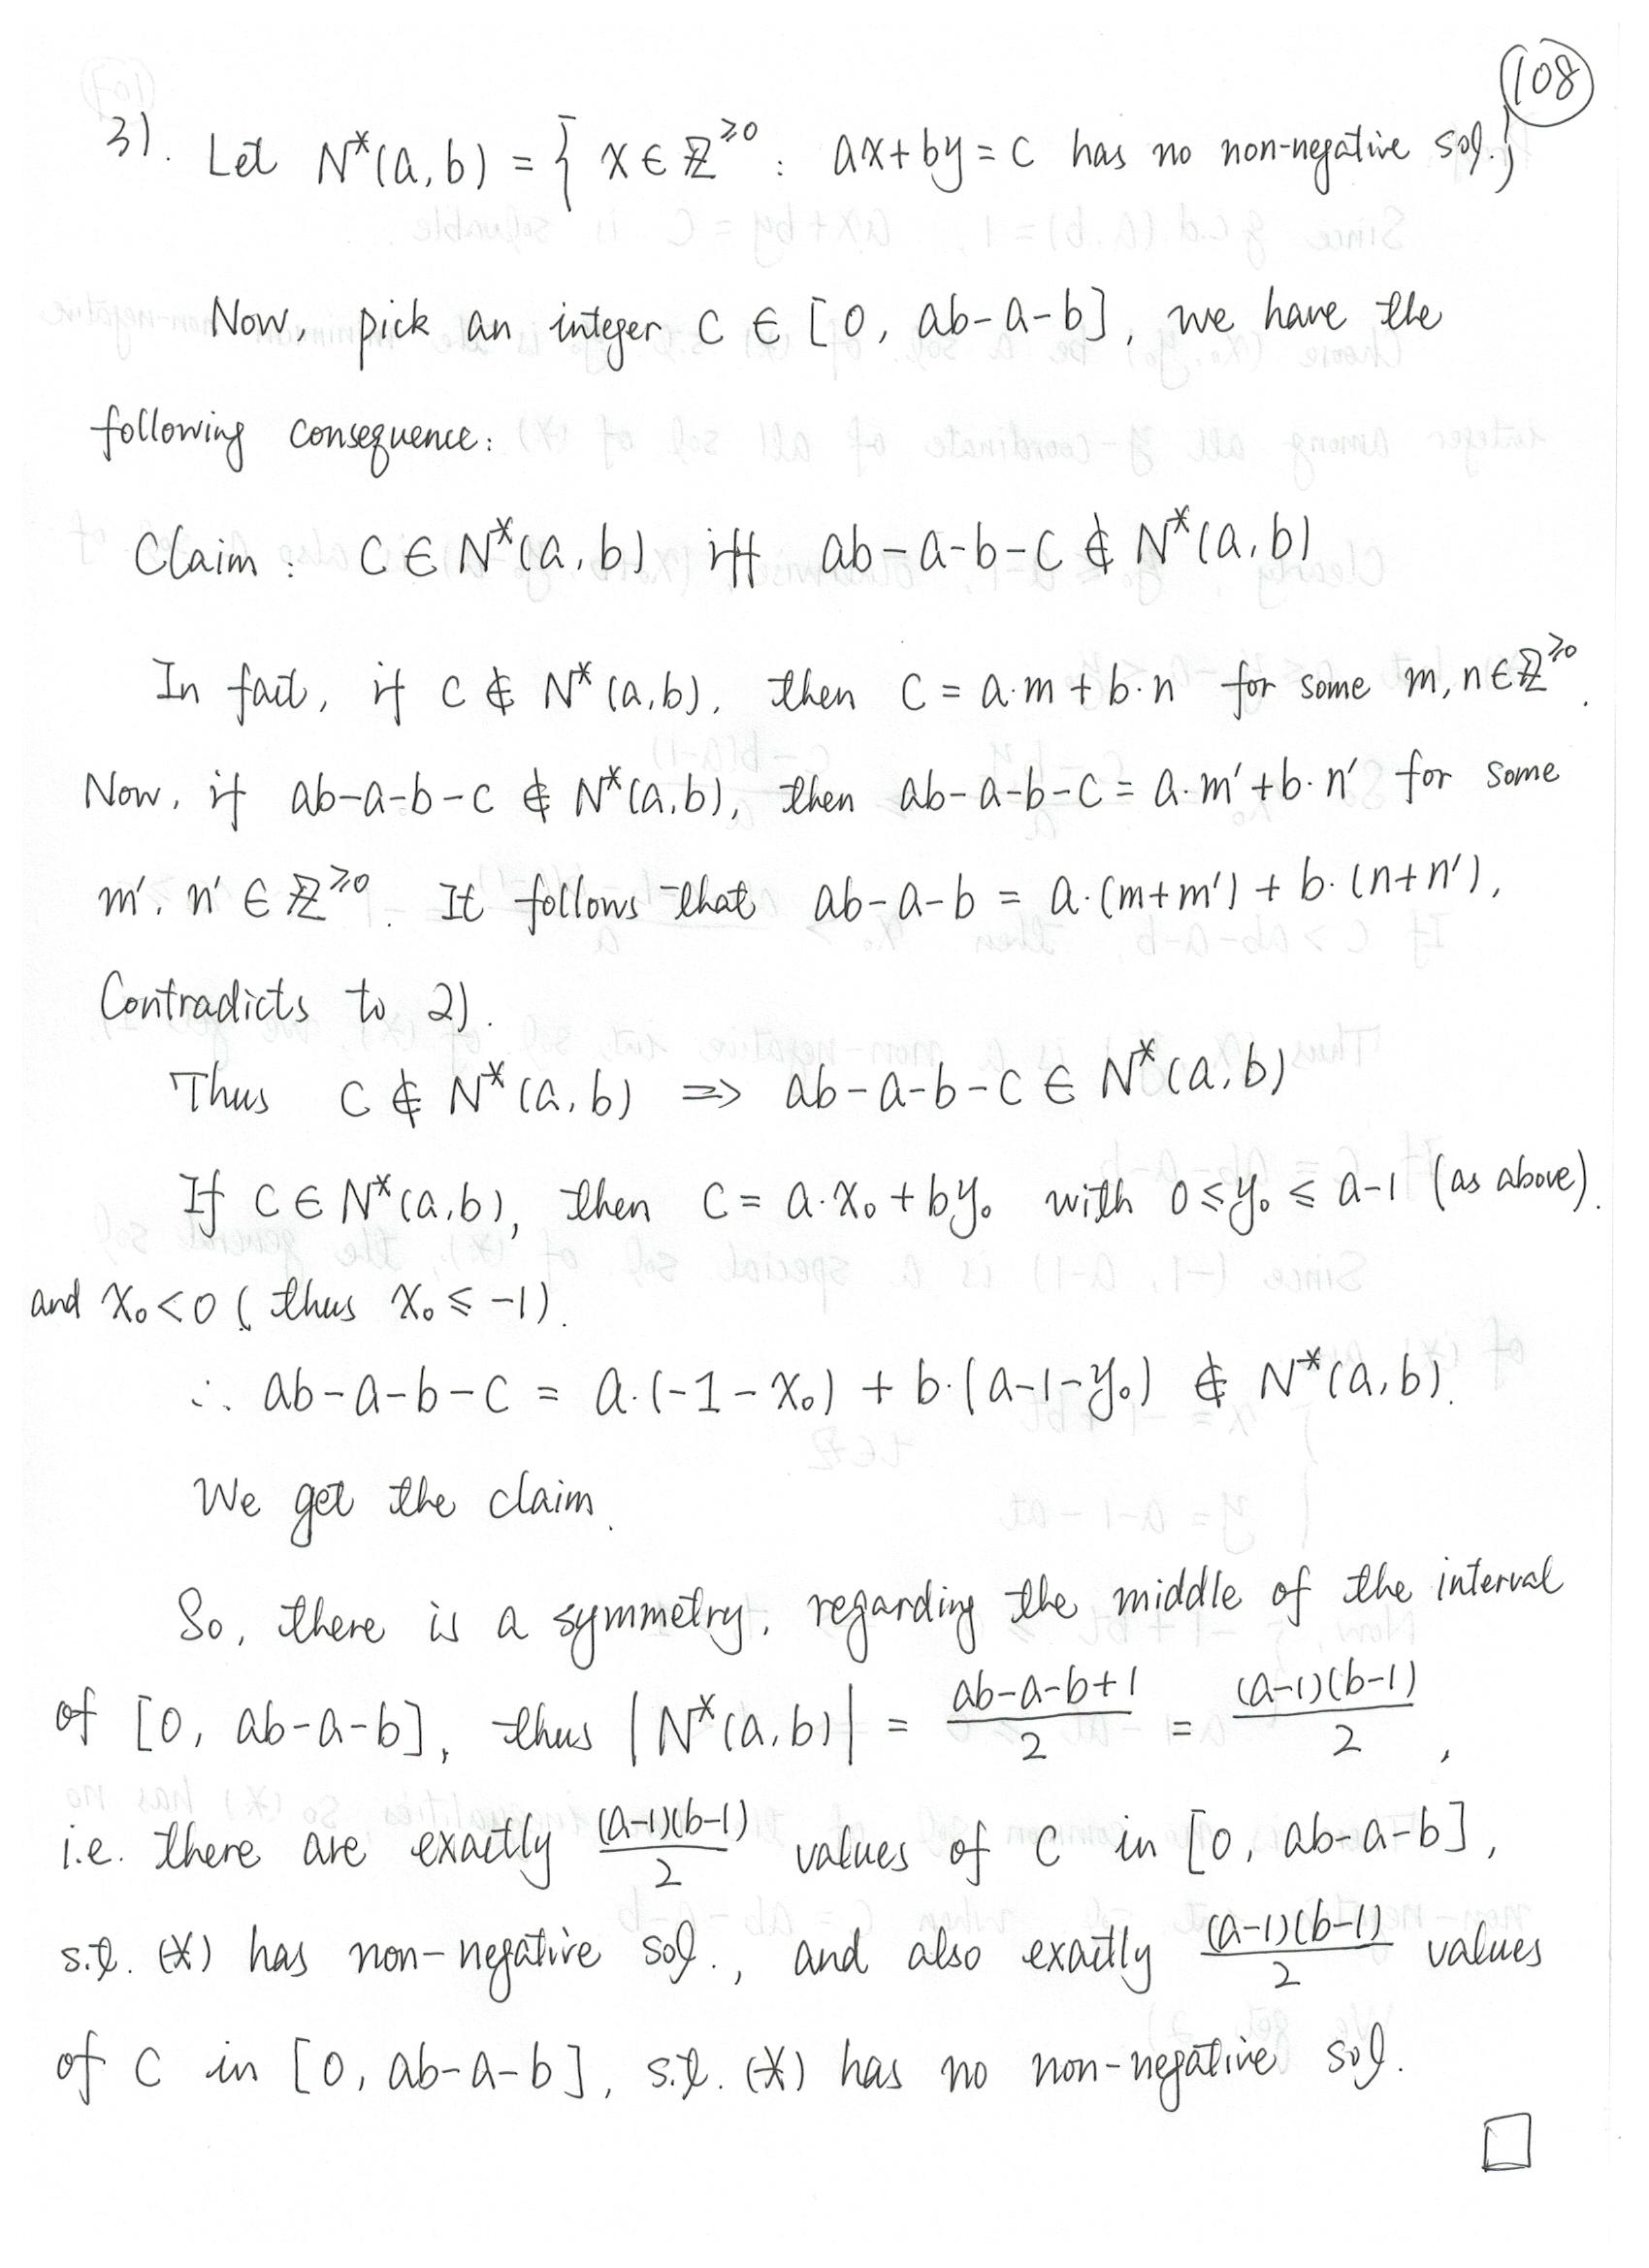 108
3). Let N*(a,b) = { x ∈ ℤ^≥0 : ax+by=c has no non-negative sol.}
Now, pick an integer C ∈ [0, ab-a-b], we have the
following consequence:
Claim: C ∈ N*(a,b) iff ab-a-b-c ∉ N*(a,b)
In fact, if c ∉ N*(a,b), then C = a·m + b·n for some m, n ∈ ℤ^≥0.
Now, if ab-a-b-c ∉ N*(a,b), then ab-a-b-c = a·m'+b·n' for some
m', n' ∈ ℤ^≥0. It follows that ab-a-b = a·(m+m') + b·(n+n'),
Contradicts to 2).
Thus C ∉ N*(a,b) ⇒ ab-a-b-c ∈ N*(a,b)
If C ∈ N*(a,b), then C = a·x₀ + by₀ with 0 ≤ y₀ ≤ a-1 (as above).
and x₀ < 0 (thus x₀ ≤ -1).
∴ ab-a-b-c = a·(-1-x₀) + b·(a-1-y₀) ∉ N*(a,b).
We get the claim.
So, there is a symmetry, regarding the middle of the interval
of [0, ab-a-b], thus |N*(a,b)| = (ab-a-b+1)/2 = (a-1)(b-1)/2,
i.e. there are exactly (a-1)(b-1)/2 values of C in [0, ab-a-b],
s.t. (*) has non-negative sol., and also exactly (a-1)(b-1)/2 values
of C in [0, ab-a-b], s.t. (*) has no non-negative sol.
□